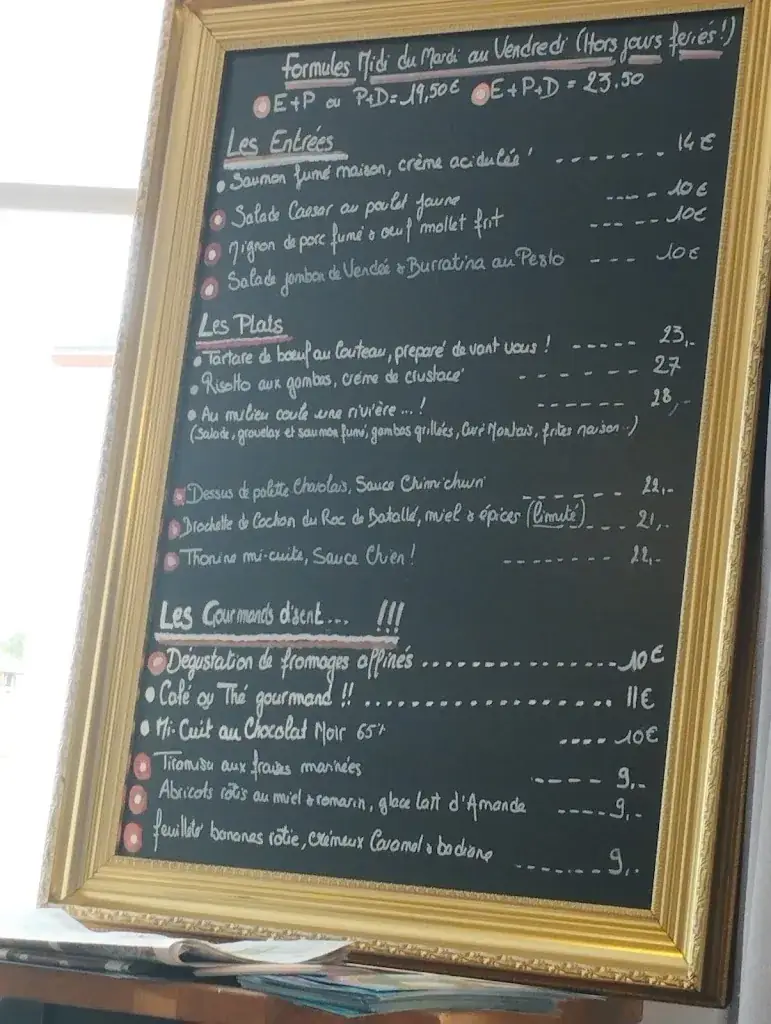 Formules Midi du Mardi au Vendredi (Hors jours feriés !)
E+P ou P+D = 19,50€ E+P+D = 23.50
Les Entrées
Saumon fumé maison, crème acidulée ! ------- 14€
Salade Caesar au poulet jaune ---- 10€
Mignon de porc fumé & oeuf mollet frit ------ 10€
Salade jambon de Vendée & Burratina au Pesto --- 10€
Les Plats
Tartare de boeuf au Couteau, preparé devant vous ! ----- 23,-
Risotto aux gambas, créme de crustacé ------ 27
Au milieu coule une rivière ...! ------ 28,-
(Salade, gravelax et saumon fumé, gambas grillées, Curé Nantais, frites maison.)
Dessus de palette Charolais, Sauce Chimichurri ------ 22,-
Brochette de Cochon du Roc de Batallé, miel & épices (limité)... 21,-
Thonine mi-cuite, Sauce Chien ! -------- 22,-
Les Gourmands disent... !!!
Dégustation de fromages affinés ................ 10€
Café ou Thé gourmand !! .................... 11€
Mi-Cuit au Chocolat Noir 65% .... 10€
Tiramisu aux fraises marinées ----- 9,-
Abricots rôtis au miel & romarin, glace lait d'Amande ---- 9,-
feuilleté bananes rôtie, crémeux Caramel & badiane ------ 9,-